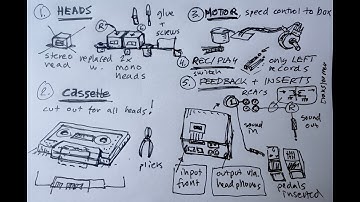 1. HEADS
glue +
screws
R
L
stereo
head
replaced
w.
2x
mono
heads
2. Cassette
cut out for all heads!
pliers
3. MOTOR speed control to box
4. REC/PLAY
switch
only LEFT
records
5. FEEDBACK + INSERTS
transformer
RCA'S
sound
in
sound
out
input
front
output via
headphones
pedals
inserted